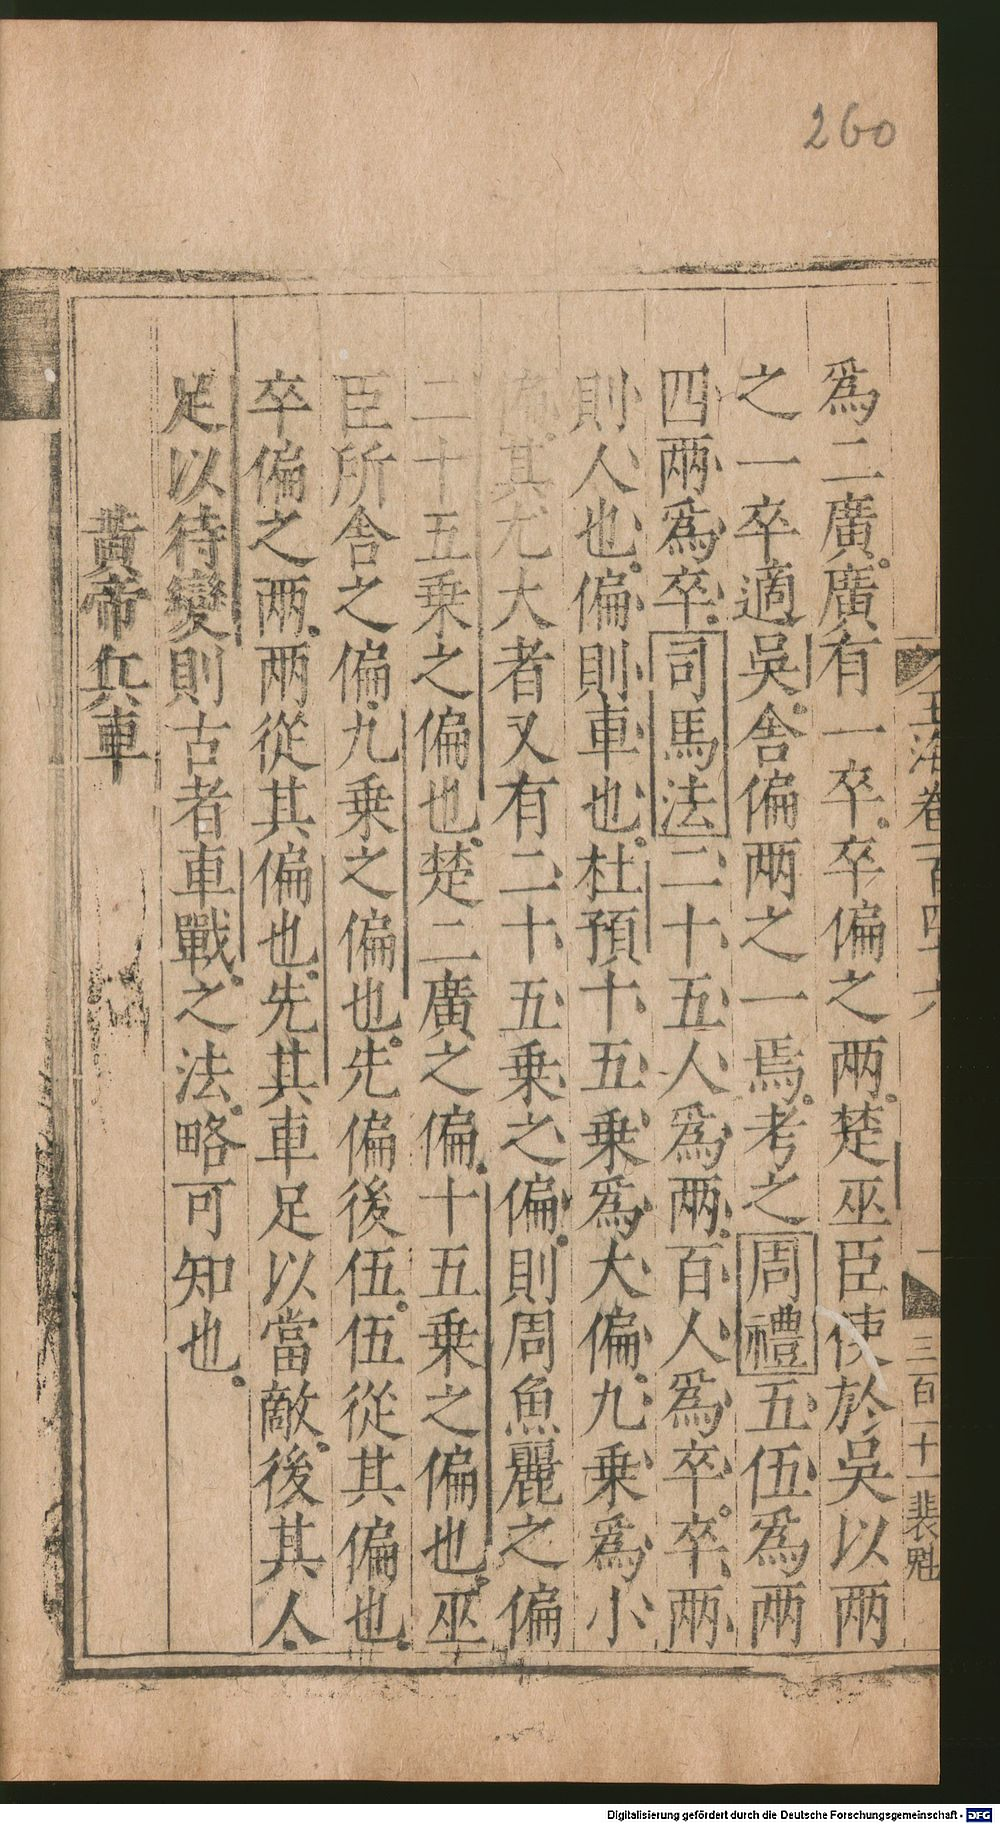 260
玉海卷百四十六 一 三百一十一裴魁
爲二廣。廣有一卒。卒偏之兩。楚巫臣使於吳以兩
之一卒適吳。舍偏兩之一焉。考之周禮五伍爲兩
四兩爲卒。司馬法二十五人爲兩。百人爲卒。卒兩
則人也。偏則車也。杜預十五乗爲大偏。九乗爲小
偏。其尤大者又有二十五乗之偏。則周魚麗之偏
二十五乗之偏也。楚二廣之偏。十五乗之偏也。巫
臣所舍之偏。九乗之偏也。先偏後伍。伍從其偏也。
卒偏之兩。兩從其偏也。先其車足以當敵。後其人
足以待變則古者車戰之法。略可知也。
黄帝兵車
Digitalisierung gefördert durch die Deutsche Forschungsgemeinschaft - DFG